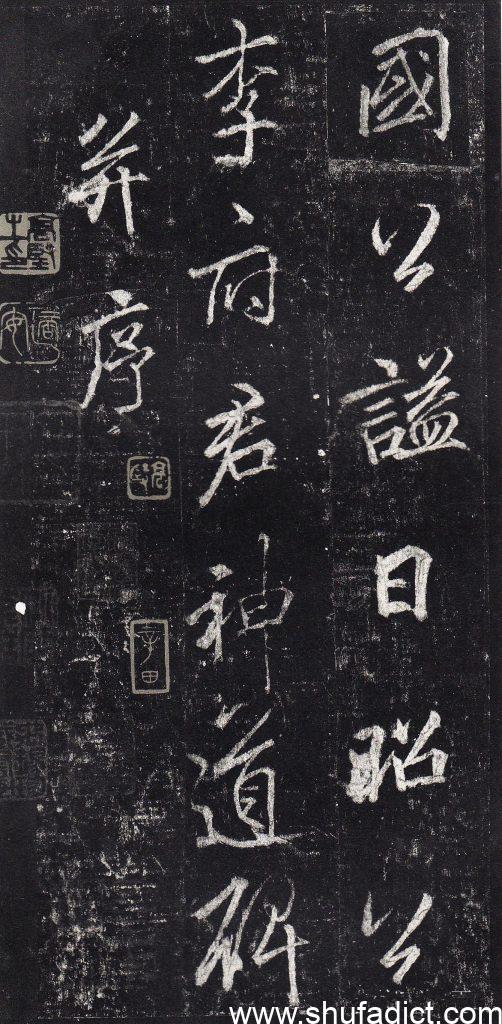 國公謚曰昭公
李府君神道碑
并序
辛田
www.shufadict.com